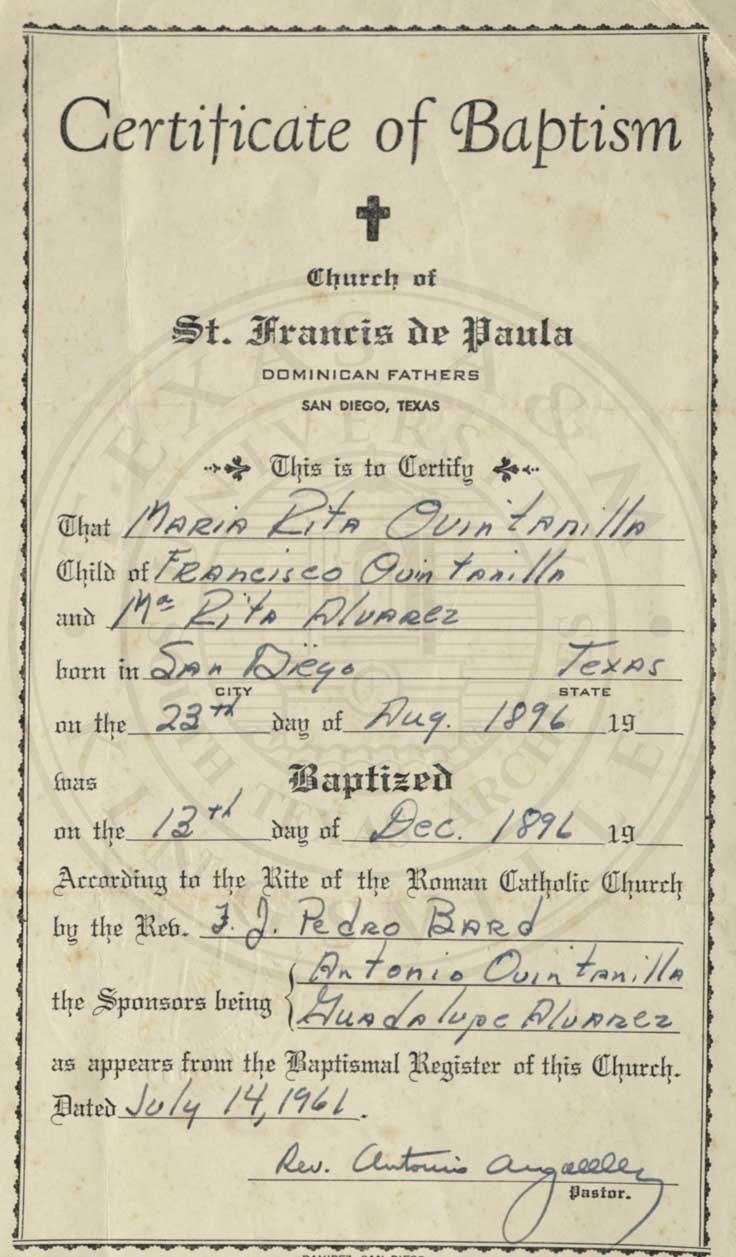 Certificate of Baptism
Church of
St. Francis de Paula
DOMINICAN FATHERS
SAN DIEGO, TEXAS
This is to Certify
That Maria Rita Quintanilla
Child of Francisco Quintanilla
and Mª Rita Alvarez
born in San Diego Texas
CITY STATE
on the 23rd day of Aug. 1896 19
was Baptized
on the 13th day of Dec. 1896 19
According to the Rite of the Roman Catholic Church
by the Rev. F. J. Pedro Bard
Antonio Quintanilla
the Sponsors being
Guadalupe Alvarez
as appears from the Baptismal Register of this Church.
Dated July 14, 1961.
Rev. Antonio
Pastor.